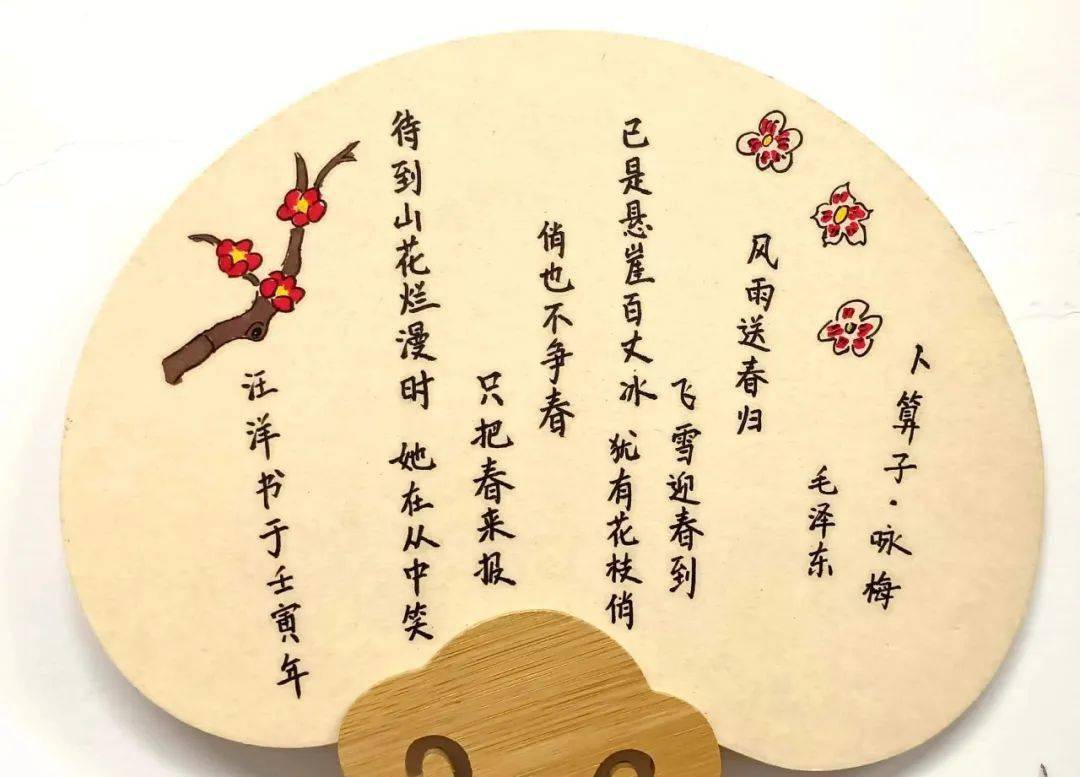 卜算子·咏梅
毛泽东
风雨送春归
飞雪迎春到
已是悬崖百丈冰 犹有花枝俏
俏也不争春
只把春来报
待到山花烂漫时 她在从中笑
汪洋书于壬寅年